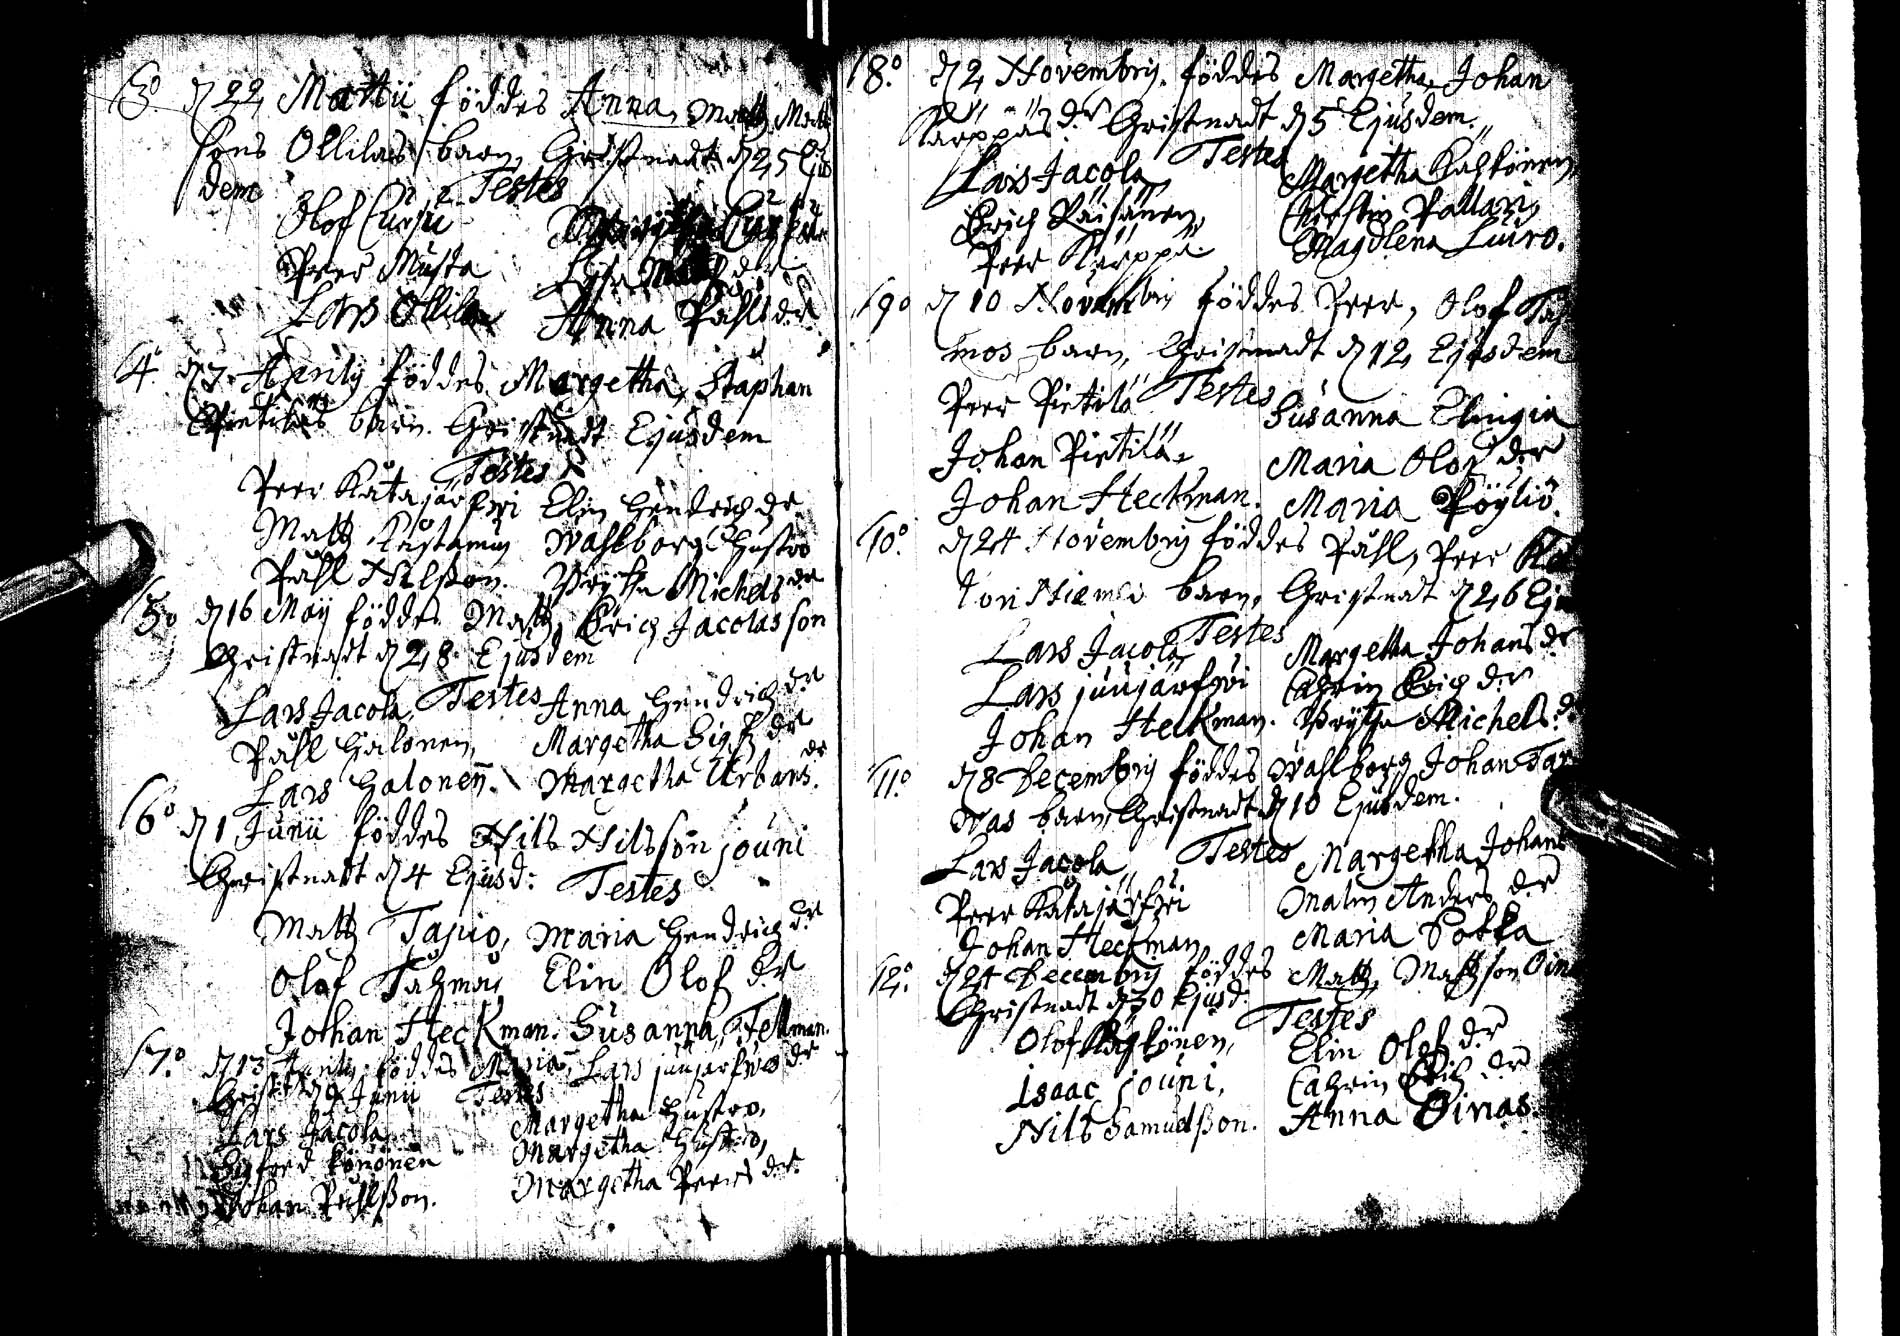 3º d 22 Martii föddes Anna, Matts Matts
sons Ollilas barn, Christnadt d 25 Ejus
dem
Testes
Olof Cursu
Peer Musta Lisa Matts dr
Lars Ollila Anna Påhls dr.
4º d 7 Aprily föddes Margetha, Staphan
Pietilas barn. Christnadt Ejusdem
Testes
Peer Katajärfwi Elin Hendrich dr
Matts Wahlborg Hustro
Påhl Nilsson. Brytha Michels dr
5º d 16 Maij föddes Matts, Erich Jacolas son
Christnadt d 28 Ejusdem
Lars Jacola, Testes Anna Hendrich dr
Påhl Halonen, Margetha Sigf dr
Lars Halonen. Margetha Urbans dr.
6º d 1 Junii föddes Nils Nilsson jouni
Christnadt d 4 Ejusd: Testes
Matts Tapio, Maria Hendrich dr
Olof Tahmas Elin Olof dr
Johan Heckman. Susanna Fellman.
7º. d 13 föddes Maria, Lars juujärfwes dr
Christ d 9 Junii Testes
Lars Jacola Margetha Hustro,
Sigfred könönen Margetha Hustro,
Johan Påhlsson. Margetha Peers dr.
8º. d 2 Novembrij. föddes Margetha Johan
Karppas dr Christnadt d 5 Ejusdem.
Testes
Lars Jacola Margetha
Erich Räisänen, Christin Pallari,
Peer Karppa. Magdlena Luiro.
9º d 10 Novembrij föddes Peer, Olof Tah
mos barn, Christnadt d 12 Ejusdem
Testes
Peer Pietilä Susanna Elingia
Johan Pietilä, Maria Olof dr
Johan Heckman. Maria Pöyliö.
10º. d 24 Novembrij föddes Påhl, Peer
Niemis barn, Christnadt d 26 Eju
Testes
Lars Jacola Margetha Johans dr
Lars juujärfwi Cahrin Erich dr
Johan Heckman. Brytha Michels d
11º. d 8 Decembrij föddes Wahlborg Johan Tar
was barn, Christnadt d 10 Ejusdem.
Lars Jacola, Testes Margetha Johans
Peer Katajärfwi Malin Anders dr
Johan Heckman Maria Pokka
12º. d 24 Decembrij föddes Matts, Matsson Oina
Christnadt d 30 Ejusd.
Testes
Olof Elin Olof dr
Isaac jouni, Cahrin Erich dr
Nils Samuelsson. Anna Oinas.